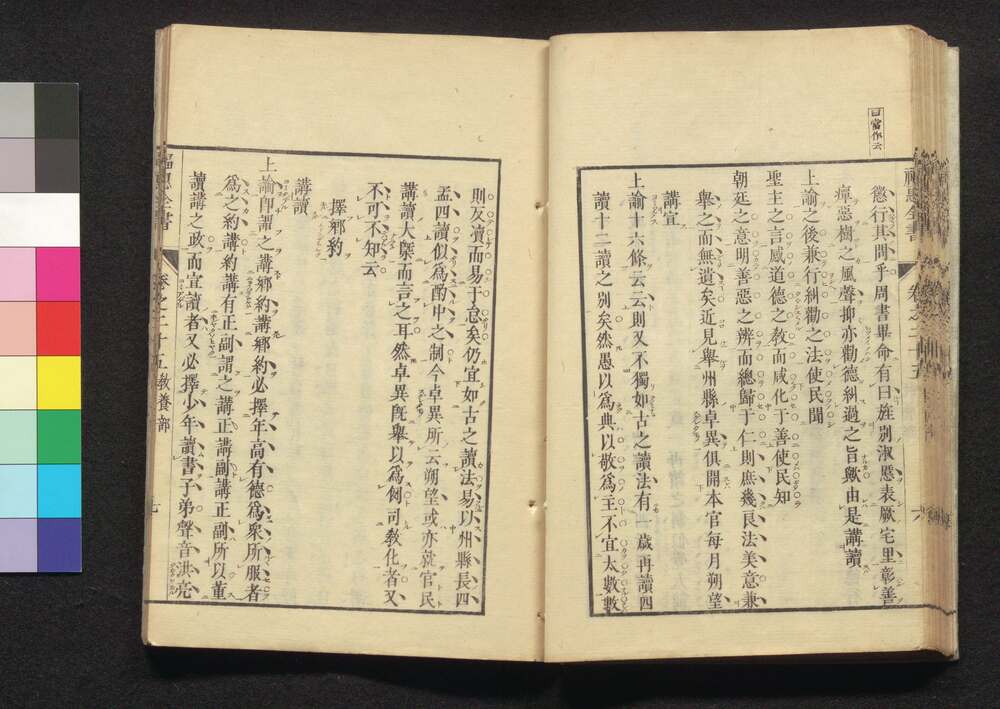 曰當作云
福惠全書 卷之二十五 六
懲行其間乎周書畢命有曰旌別淑慝表厥宅里彰善
癉惡樹之風聲抑亦勸德糾過之旨歟由是講讀
上諭之後兼行糾勸之法使民聞
聖主之言感道德之教而咸化于善使民知
朝廷之意明善惡之辨而總歸于仁則庶幾良法美意兼
舉之而無遺矣近見舉州縣卓異俱開本官每月朔望
講宣
上諭十六條云云則又不獨如古之讀法有一歲再讀四
讀十二讀之別矣然愚以爲典以敬爲主不宜太數數
則反凟而易于怠矣仍宜如古之讀法易以州縣長四
孟四讀似爲酌中之制今卓異所云朔望或亦就官民
講讀大槩而言之耳然卓異旣舉以爲例司敎化者又
不可不知云
擇鄉約
講讀
上諭卽謂之講鄉約講鄉約必擇年高有德爲衆所服者
爲之約講約講有正副謂之講正講副講正副所以董
讀講之政而宜讀者又必擇少年讀書子弟聲音洪亮
福惠全書 卷之二十五 敎養部 七